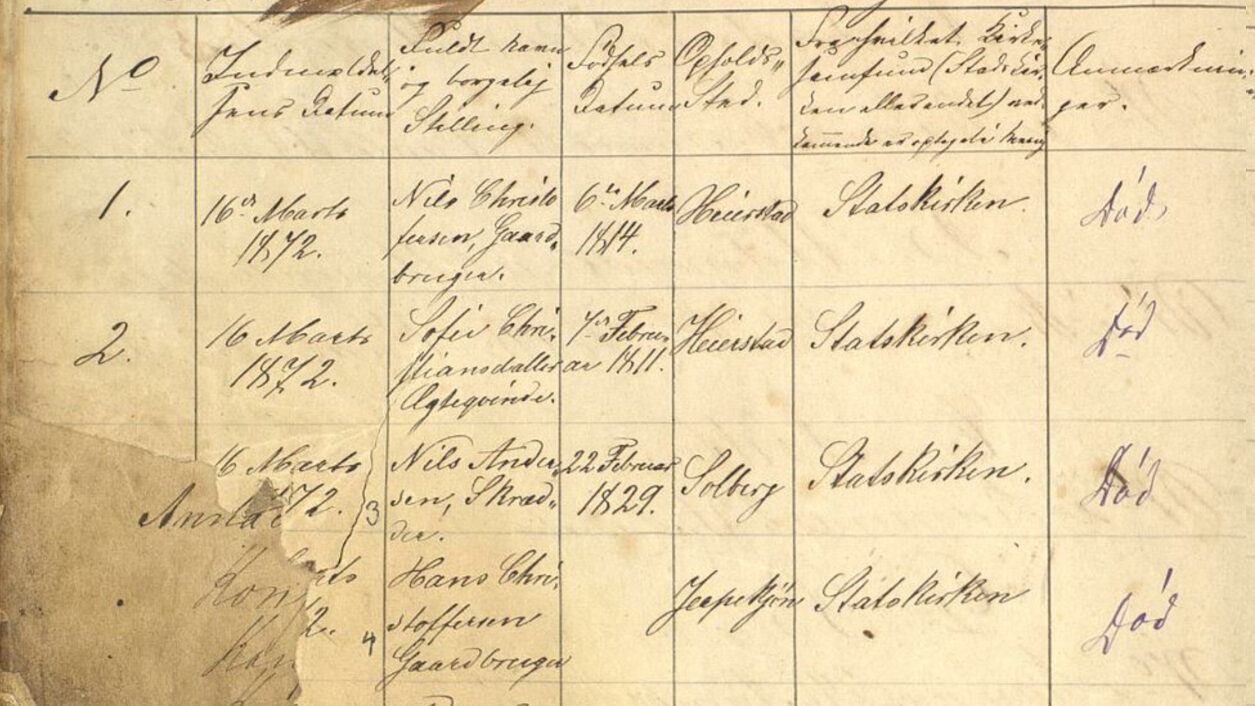 No
Indmeldel-
sens Datum
Fuldt Navn
og borgelig
Stilling.
Fødsels
Datum
Opholds-
Sted.
Fra hvilket Kirke-
samfund (Statskir-
ken eller andet) ved-
kommende er optaget i Menig
Anmærknin-
ger.
1.
16de Marts
1872.
Nils Christo
fersen, Gaard-
bruger.
6te Marts
1814.
Heierstad
Statskirken.
Død
2.
16 Marts
1872.
Sofie Chri-
stiansdatter
Ægteqvinde.
7de Februe-
ar 1811.
Heierstad
Statskirken.
Død
16 Marts
72.
3
Nils Ander-
sen, Skræd-
der.
22 Februar
1829.
Solberg
Statskirken.
Død
4
Hans Chri-
stoffersen
Gaardbruger
Statskirken
Død